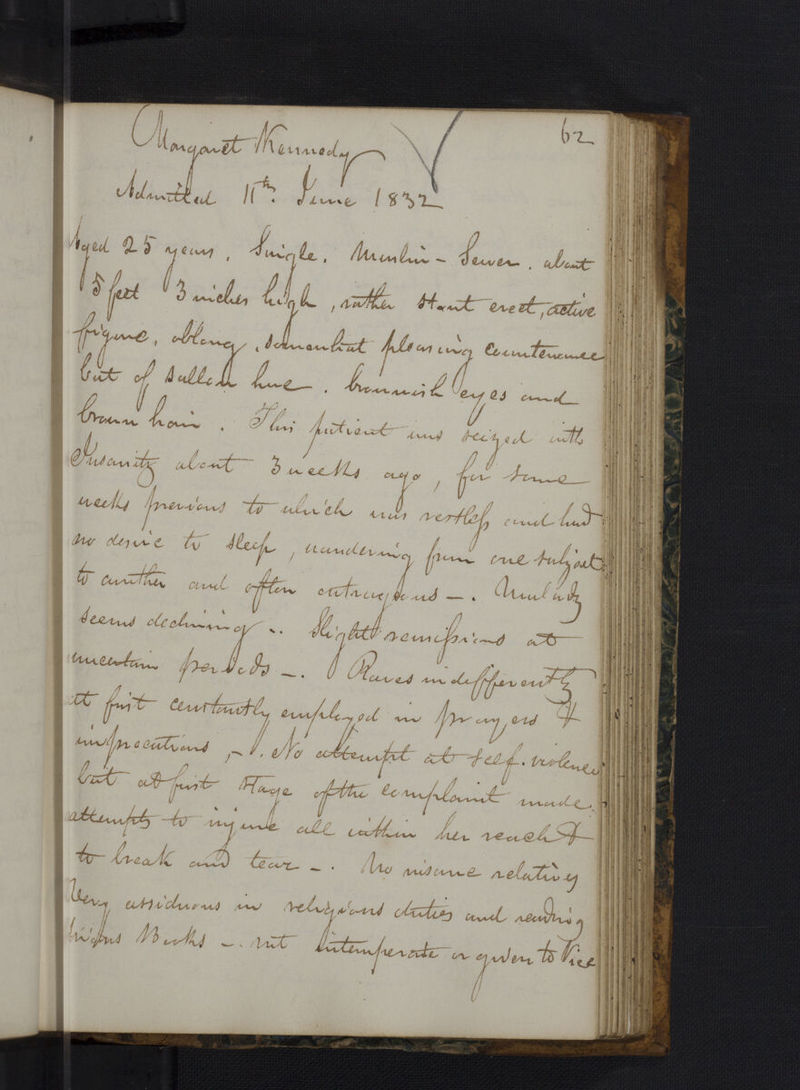 62
Margaret Kennedy
Admitted 11th. June 1832
Aged 25 years. Single. Muslin-Sewer. about
5 feet 3 inches high, rather stout erect, active
figure, oblong, somewhat pleasing countenance
but of sallow hue. brownish eyes and
brown hair. This patient was seized with
Insanity about 3 weeks ago, for some
weeks previous to which was restless and had
no desire to sleep, wandering from one subject
to another and often outrageous -. Malady
seems declining -. Slight remissions at
uncertain periods -. Raves indifferently
at first constantly employed in prayers &
imprecations, -. No attempt at self-violence
but at first stage of the complaint made
attempts to injure all within her reach &
to break and tear -. No insane relatives
Very assiduous in religious duties and reading
Books -. not intemperate or given to Vice